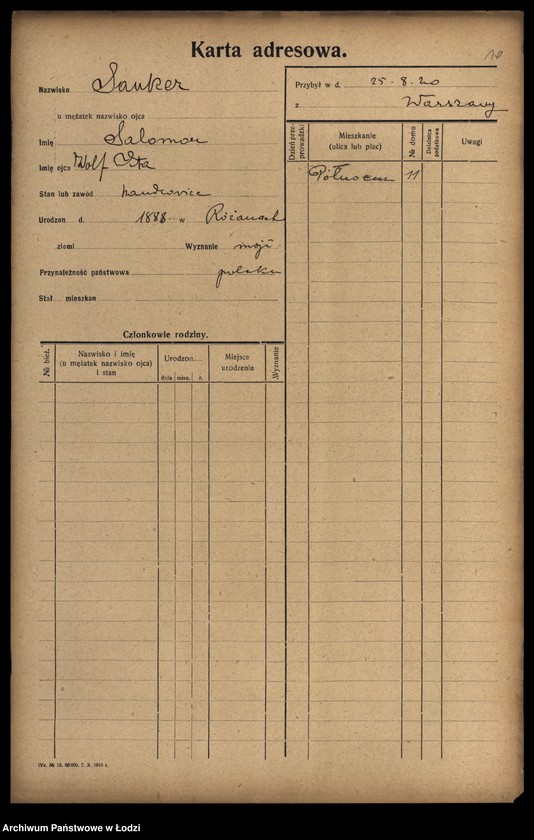 Karta adresowa.
10
Nazwisko Sanker
u mężatek nazwisko ojca
Imię Salomon
Imię ojca Wolf Ita
Stan lub zawód handlowiec
Urodzon d. 1888 w Różanach
ziemi Wyznanie mojż.
Przynależność państwowa polska
Stał. mieszkan
Przybył w d. 25-8-20
z Warszawy
Dzień przeprowadzki
Mieszkanie (ulica lub plac)
№ domu
Dzielnica podatkowa
Uwagi
11
Członkowie rodziny.
№ bież.
Nazwisko i imię
(u mężatek nazwisko ojca)
i stan
Urodzon
dnia mies. r.
Miejsce
urodzenia
Wyznanie
7. X. 1919 r.
Archiwum Państwowe w Łodzi